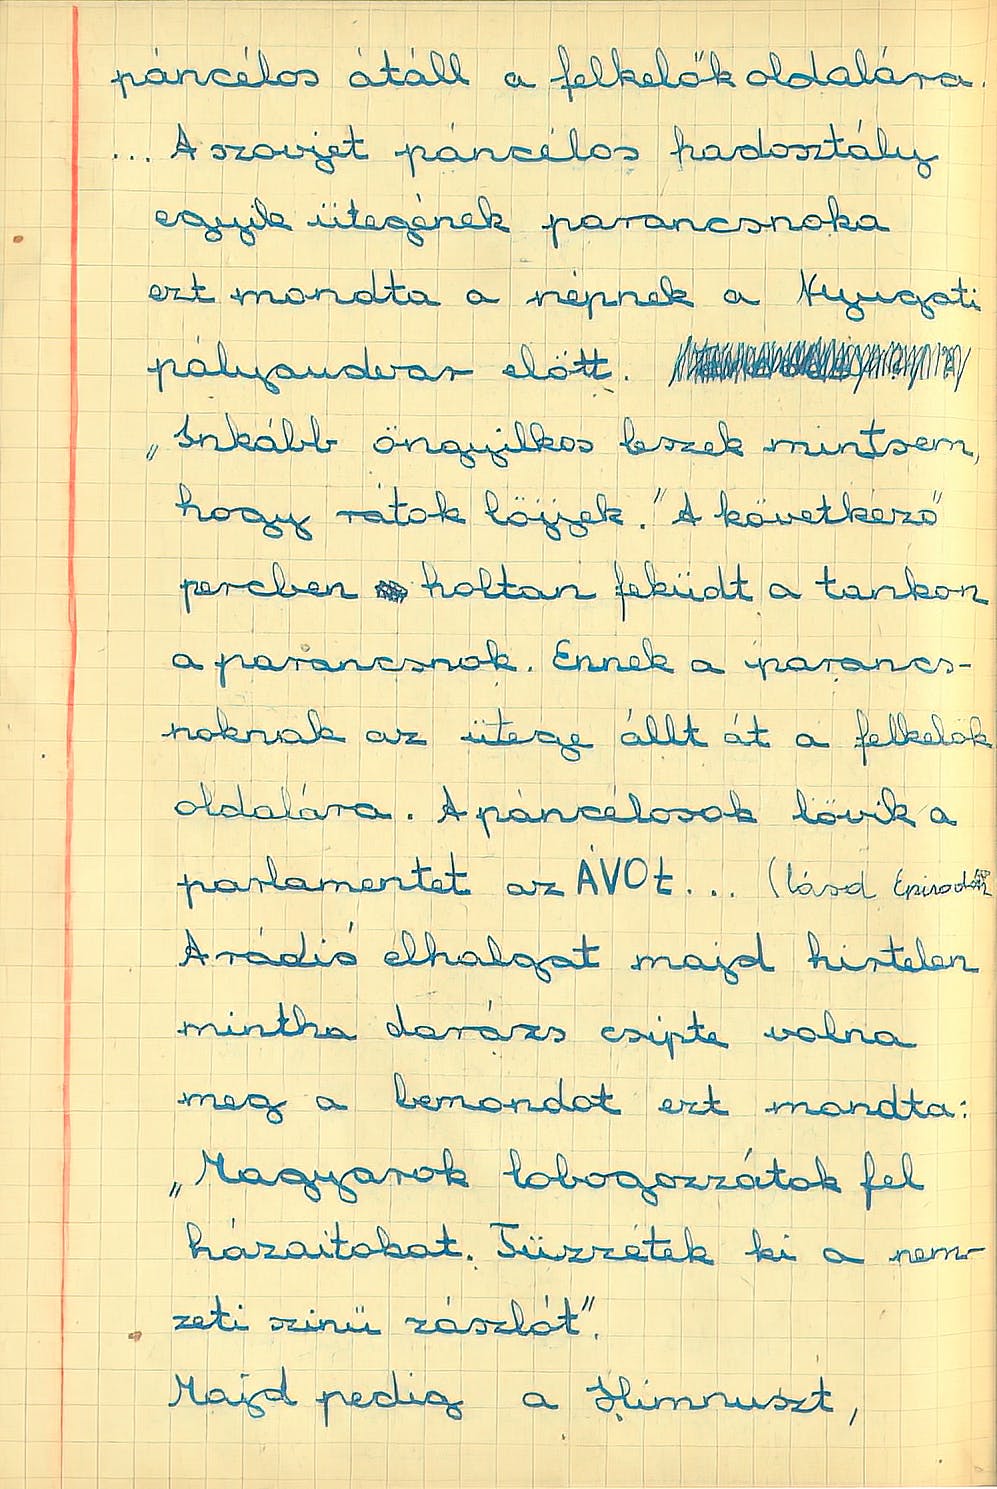 páncélos átáll a felkelők oldalára.
... A szovjet páncélos hadosztály
egyik ütegének parancsnoka
ezt mondta a népnek a Nyugati
pályaudvar előtt.
„Inkább öngyilkos leszek mintsem,
hogy rátok lőjjek." A következő
percben holtan feküdt a tankon
a parancsnok. Ennek a parancs-
noknak az ütege állt át a felkelők
oldalára. A páncélosok lövik a
parlamentet az ÁVOt... (lásd
A rádió elhalgat majd hirtelen
mintha darázs csipte volna
meg a bemondot ezt mondta:
„Magyarok lobogozzátok fel
házaitokat. Tüzzétek ki a nem-
zeti szinü zászlót".
Majd pedig a Himnuszt,